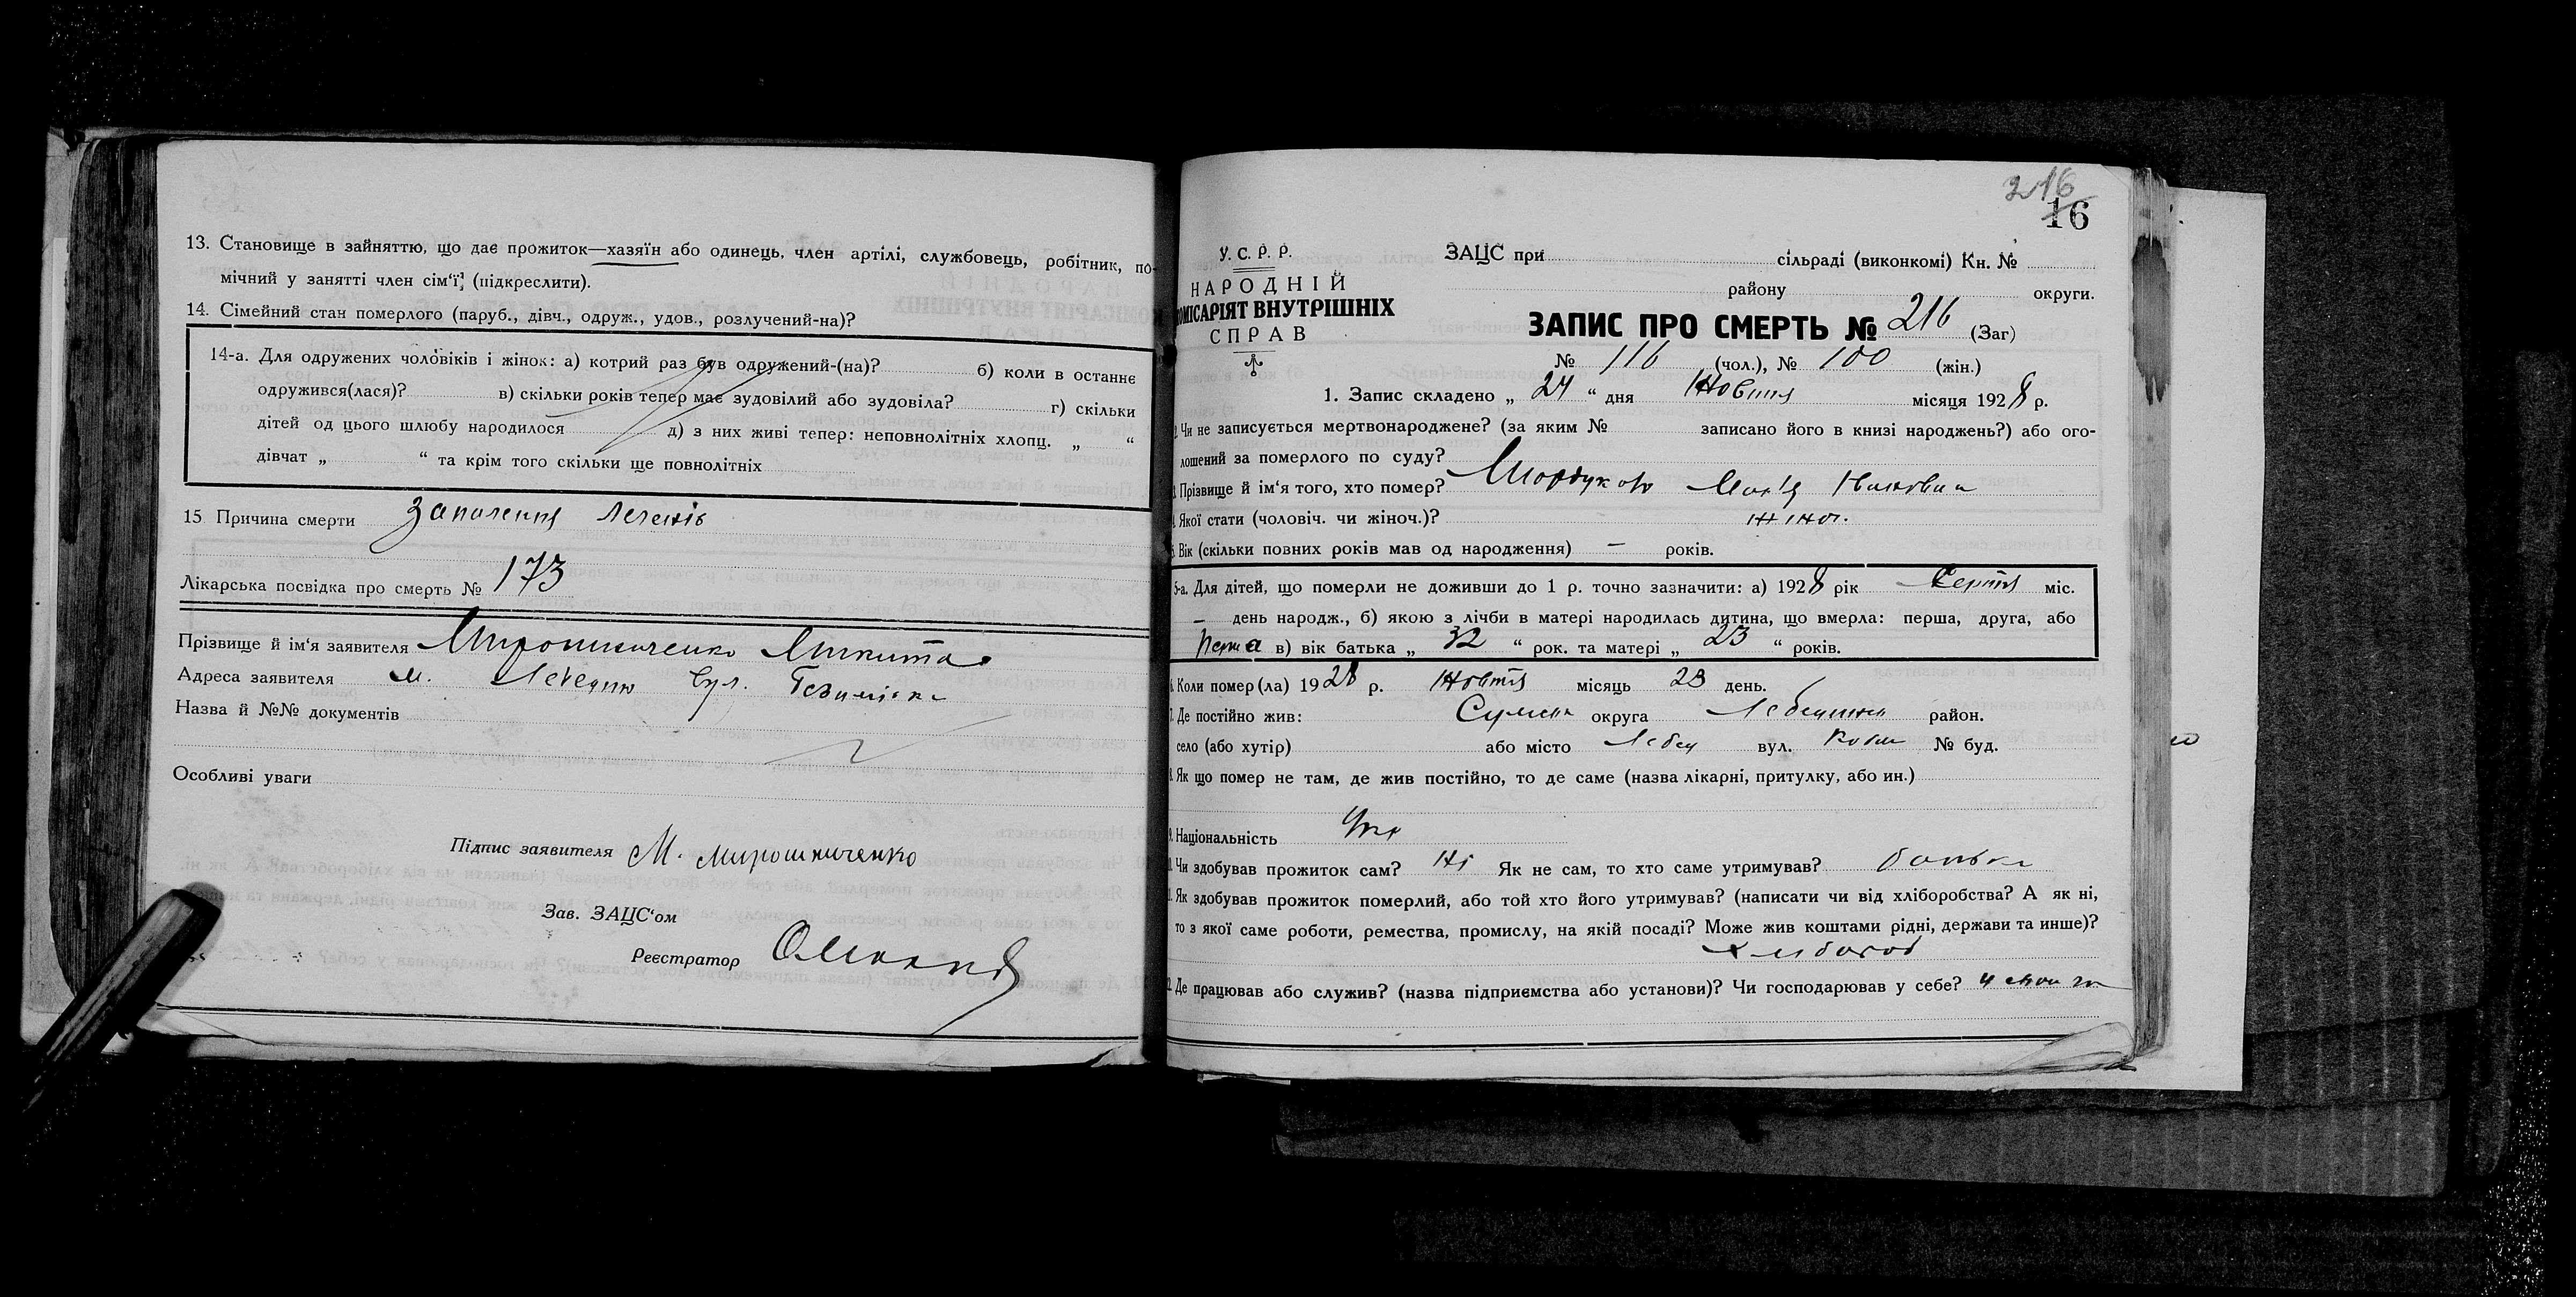 13. Становище в зайняттю, що дає прожиток—хазяїн або одинець, член артілі, службовець, робітник, по-
мічний у занятті член сім'ї, (підкреслити).
14. Сімейний стан померлого (паруб., дівч., одруж., удов., розлучений-на)?
14-а. Для одружених чоловіків і жінок: а) котрий раз був одружений-(на)? б) коли в останнє
одружився(лася)? в) скільки років тепер має зудовілий або зудовіла? г) скільки
дітей од цього шлюбу народилося д) з них живі тепер: неповнолітніх хлопц. „ “
дівчат „ “ та крім того скільки ще повнолітніх
15 Причина смерти запалення легенів
Лікарська посвідка про смерть № 173
Прізвище й ім'я заявителя Мирошниченко Микита
Адреса заявителя м. Лебедин вул.
Назва й №№ документів
Особливі уваги
Підпис заявителя М. Мирошниченко
Зав. ЗАЦС'ом
Реєстратор
216
16
У. С. Р. Р.
НАРОДНІЙ
КОМІСАРІЯТ ВНУТРІШНІХ
СПРАВ
ЗАЦС при сільраді (виконкомі) Кн. №
району округи.
ЗАПИС ПРО СМЕРТЬ № 216 (Заг)
№ 116 (чол.), № 100 (жін.)
1. Запис складено „ 24 “ дня Жовтня місяця 1928 р.
2. Чи не записується мертвонароджене? (за яким № записано його в книзі народжень?) або ого-
лошений за померлого по суду?
3. Прізвище й ім'я того, хто помер?
4. Якої стати (чоловіч. чи жіноч.)? жіноч.
5. Вік (скільки повних років мав од народження) — років.
5-а. Для дітей, що померли не доживши до 1 р. точно зазначити: а) 1928 рік Серпня міс.
— день народж., б) якою з лічби в матері народилась дитина, що вмерла: перша, друга, або
Перша в) вік батька „ 32 “ рок. та матері „ 23 “ років.
6. Коли помер(ла) 1928 р. Жовтня місяць 23 день.
7. Де постійно жив: Сумська округа Лебединський район.
село (або хутір) або місто Лебед вул. № буд.
8. Як що помер не там, де жив постійно, то де саме (назва лікарні, притулку, або ин.)
9. Національність Укр
10. Чи здобував прожиток сам? Ні Як не сам, то хто саме утримував? батьки
11. Як здобував прожиток померлий, або той хто його утримував? (написати чи від хліборобства? А як ні,
то з якої саме роботи, ремества, промислу, на якій посаді? Може жив коштами рідні, держави та инше)?
хлібороб
12. Де працював або служив? (назва підприємства або установи)? Чи господарював у себе?